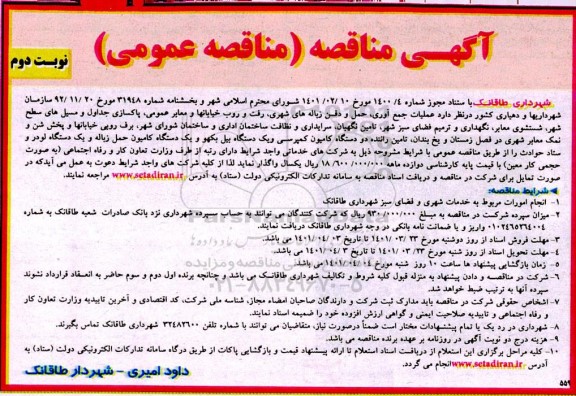 آگهـی مناقصه (مناقصه عمومی)
نوبت دوم
شهرداری طاقانک با ستناد مجوز شماره ۱۴۰۰/۴ مورخ ۱۴۰۱/۰۲/۱۰ شورای محترم اسلامی شهر و بخشنامه شماره ۳۱۹۴۸ مورخ ۹۲/۱۱/۲۰ سازمـان
شهرداریها و دهیاری کشور درنظر دارد عملیات جمع آوری، حمل و دفـن زباله های شهری، رفت و روب خیابانها و معابر عمومی، پاکسازی جداول و مسیل های سطح
شهر، شستشوی معابر، نگهداری و ترمیم فضای سبز شهر، تامین نگهبان، سرایداری و نظافت ساختمان اداری و ساختمان شورای شهر، برف روبی خیابانها و پخش شن و
نمک معابر شهری در فصل زمستان و یخ بندان، تامین راننده دو دستگاه کامیون کمپرسـی ویک دستگاه بیل بکهو و یک دستگاه کامیون حمل زباله و یک دستگاه لودر و
ستاد حوادث را از طریق مناقصه عمومی با شرایط مشروحه ذیل به شرکت های خدماتی واجد شرایط دارای رتبه از طرف وزارت تعاون کار و رفاه اجتماعی (به صورت
حجمی کار معین) با قیمت پایه کارشناسی دوازده ماهه ۱۸/۶۰۰/۰۰۰/۰۰۰ ریال یکسال واگذار نماید لذا از کلیه شرکت های واجد شرایط دعوت به عمل می آیدکه در
صورت تمایل برای شرکت در مناقصه و دریافت اسناد مناقصه به سامانه تدارکات الکترونیکی دولت (ستاد) به آدرس www.setadiran.ir مراجعه نمایند.
شرایط مناقصه:
۱- انجام امورات مربوط به خدمات شهری و فضای سبز شهرداری طاقانک
۲- میزان سپرده شرکت در مناقصه به مبلغ ۹۳۰/۰۰۰/۰۰۰ ریال که شرکت کنندگان می توانند به حساب سپرده شهرداری نزد بانک صادرات شعبه طاقانک به شماره
۰۱۰۲۴۶۵۶۴۰۰۴ واریز و یا ضمانت نامه بانکی در وجه شهرداری طاقانک دریافت نمایند.
۳- مهلت فروش اسناد از روز دوشنبه مورخ ۱۴۰۱/۰۳/۲۳ تا تاریخ ۱۴۰۱/۰۴/۰۳ می باشد.
۴- مهلت تحویل اسناد از روز شنبه مورخ ۱۴۰۱/۰۳/۲۳ تا تاریخ ۱۴۰۱/۰۴/۰۳ می باشد.
۵- زمان بازگشایی پیشنهاد ها ساعت ۱۰ روز شنبه مورخ ۱۴۰۱/۰۴/۰۴ می باشد.
۶- شرکت در مناقصـه و دادن پیشنهاد به منزله قبول کلیه شروط و تکالیف شهرداری طاقانـک می باشد و چنانچه برنده اول دوم و سوم حاضر به انعـقاد قرارداد نشوند
سپرده آنها به ترتیب ضبط خواهد شد.
۷- اشخاص حقوقی شرکت در مناقصه باید مدارک ثبت شرکت و دارندگان صاحبان امضاء مجاز، شناسه ملی شرکت، کد اقتصادی و آخرین تاییدیه وزارت تعاون کار
و رفاه اجتماعی و تاییدیه صلاحیت ایمنی و گواهی ارزش افزوده خود را ضمیمه اسناد نمایند.
۸- شهرداری در رد یک یا تمام پیشنهادات مختار است ضمناً درصورت نیاز، متقاضیان می توانند با شماره تلفن ۳۲۴۸۳۶۰۰ شهرداری طاقانک تماس بگیرند.
۹- هزینه درج دو نوبت آگهی در روزنامه بر عهده برنده مناقصه می باشد.
۱۰- کلیه مراحل برگزاری این استعلام از دریافت اسناد استعلام تا ارائه پیشنهاد قیمت و بازگشایی پاکات از طریق درگاه سامانه تدارکات الکترونیکی دولت (ستاد) به
آدرس www.setadiran.ir انجام می گردد.
داود امیری - شهردار طاقانک
۵۵۹
۰۲۱-۸۸۳۴۹۶۷۰-۵